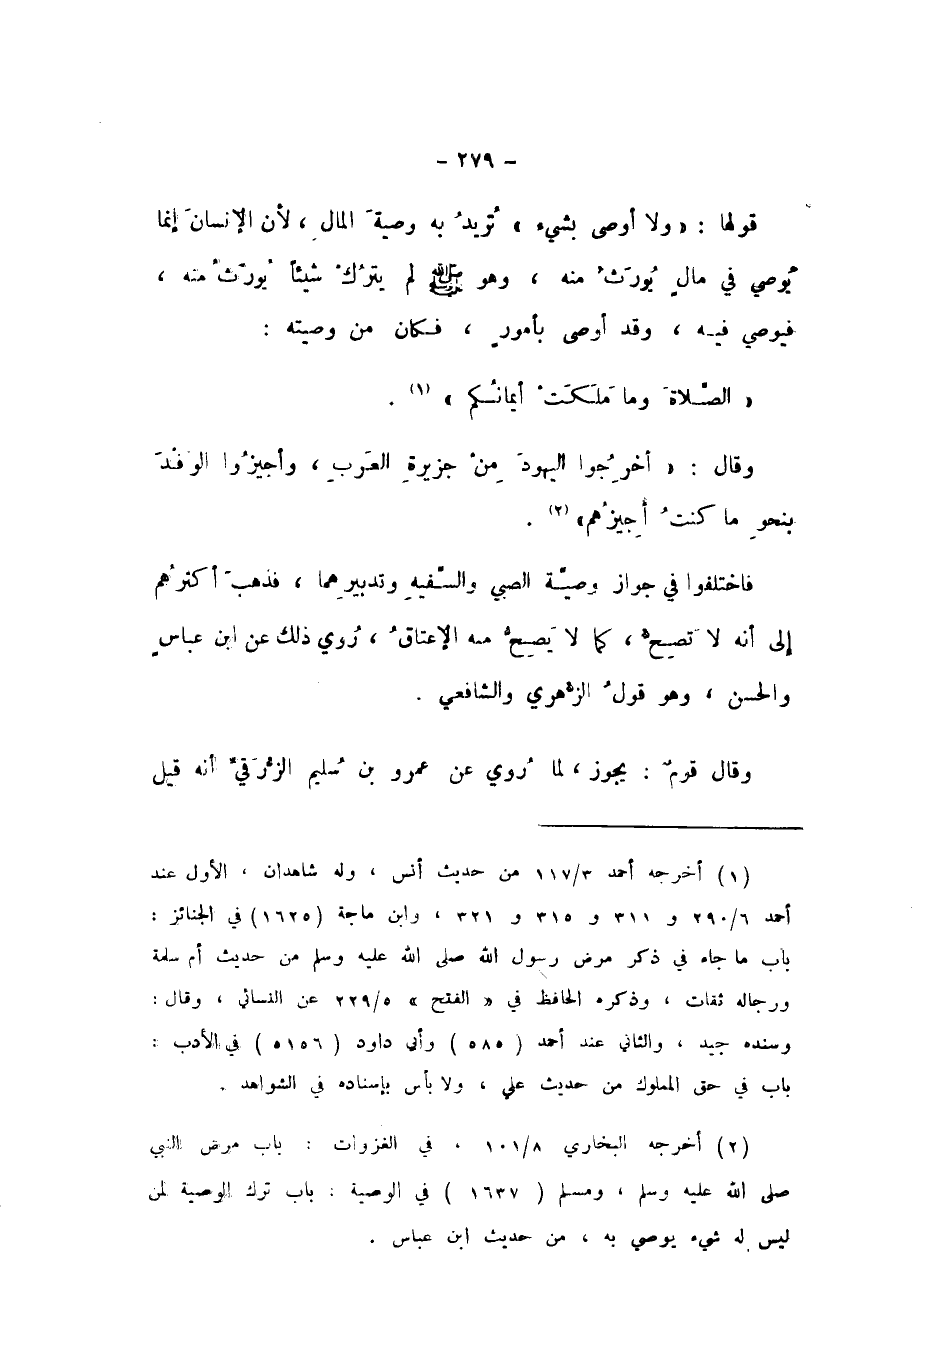 - ٢٧٩ -
قولها : « ولا أوصى بشيء » تُريدُ به وصيةَ المال ، لأن الإنسانَ إنما
يُوصي في مالٍ يُورَثُ منه ، وهو ﷺ لم يتركْ شيئاً يُورَثُ منه ،
فيوصي فيه ، وقد أوصى بأمورٍ ، فكان من وصيته :
« الصَّلاةَ وما مَلَكَتْ أيمانُكم » (١) .
وقال : « أخرِجُوا اليهودَ مِنْ جزيرةِ العَربِ ، وأجيزُوا الوَفْدَ
بنحوِ ما كنتُ أُجِيزُهم» (٢) .
فاختلفوا في جواز وصيَّة الصبي والسَّفيهِ وتدبيرِهما ، فذهبَ أكثرُهم
إلى أنه لا تَصِحُّ ، كما لا يَصِحُّ منه الإعتاقُ ، رُوي ذلك عن ابن عباسٍ
والحسن ، وهو قولُ الزُّهري والشافعي .
وقال قومٌ : يجوز ، لما رُوي عن عمرو بن سُليم الزُّرَقيِّ أنه قيل
(١) أخرجه أحمد ١١٧/٣ من حديث أنس ، وله شاهدان ، الأول عند
أحمد ٢٩٠/٦ و ٣١١ و ٣١٥ و ٣٢١ ، وابن ماجة (١٦٢٥) في الجنائز :
باب ما جاء في ذكر مرض رسول الله صلى الله عليه وسلم من حديث أم سلمة
ورجاله ثقات ، وذكره الحافظ في « الفتح » ٢٢٩/٥ عن النسائي ، وقال :
وسنده جيد ، والثاني عند أحمد ( ٥٨٥ ) وأبي داود ( ٥١٥٦ ) في الأدب :
باب في حق المملوك من حديث علي ، ولا بأس بإسناده في الشواهد .
(٢) أخرجه البخاري ١٠١/٨ ، في الغزوات : باب مرض النبي
صلى الله عليه وسلم ، ومسلم ( ١٦٣٧ ) في الوصية : باب ترك الوصية لمن
ليس له شيء يوصي به ، من حديث ابن عباس .